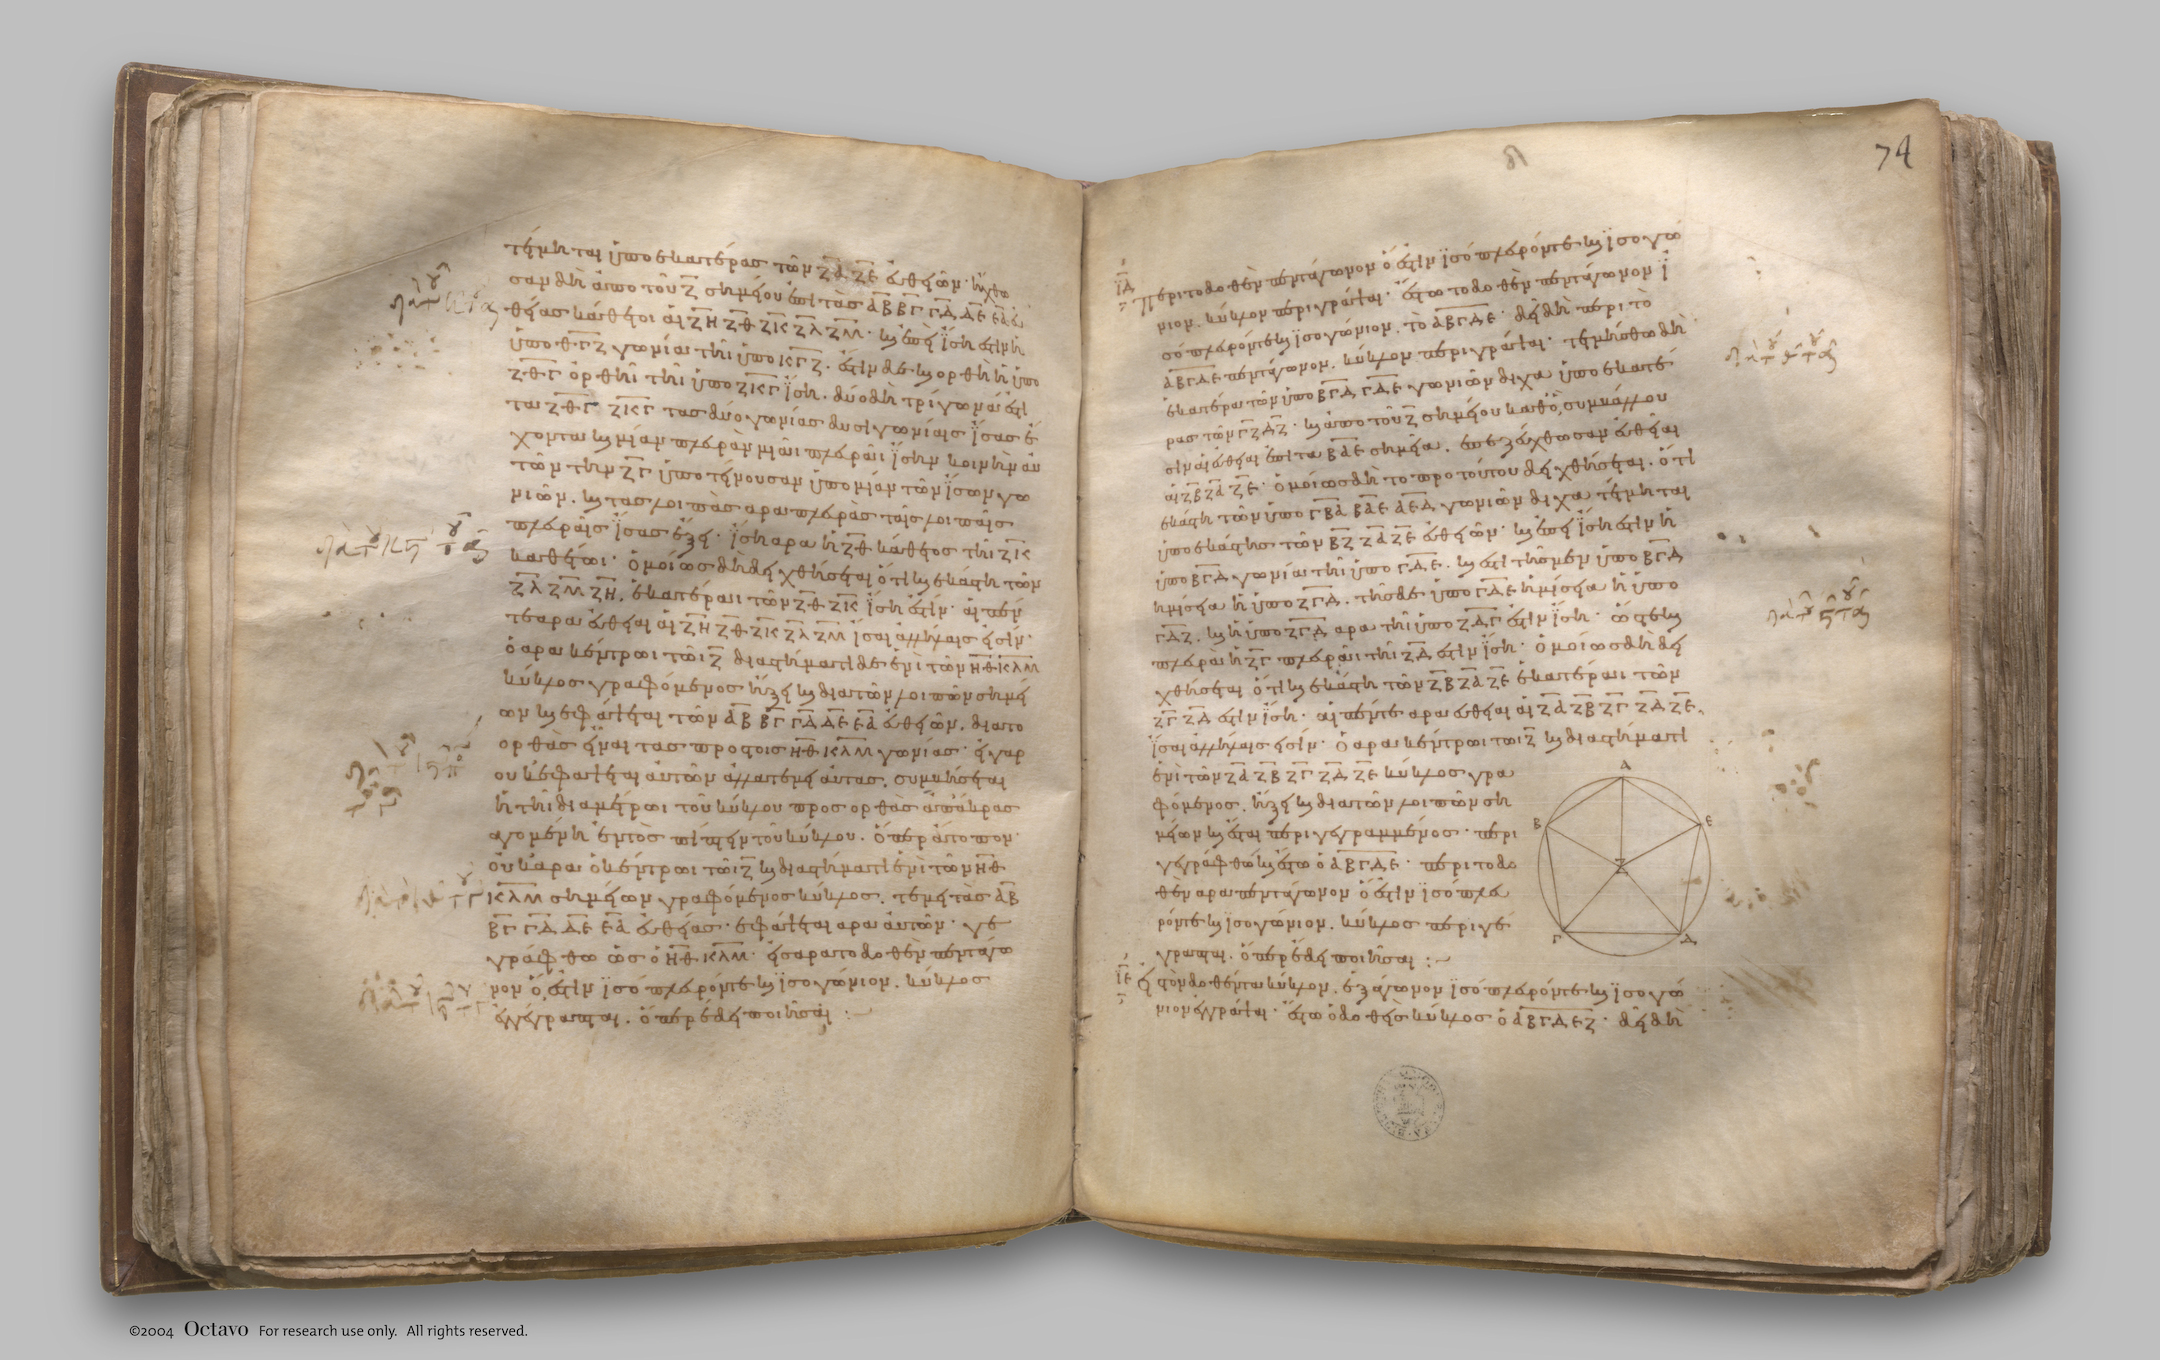 τέμηται ὑπο ἑκατέρας τῶν ΖΔ ΖΕ εὐθειῶν· ἤχθω
σαν δὴ ἀπο τοῦ Ζ σημείου ἐπὶ τὰς ΑΒ ΒΓ ΓΔ ΔΕ ΕΑ εὐ
θείας κάθετοι αἱ ΖΗ ΖΘ ΖΚ ΖΛ ΖΜ· καὶ ἐπεὶ ἴση ἐστὶν ἡ
ὑπο ΘΓΖ γωνία τῆι ὑπο ΚΓΖ. ἐστὶν δὲ καὶ ὀρθὴ ἡ ὑπο
ΖΘΓ ὀρθῆι τῆι ὑπο ΖΚΓ ἴση. δύο δὴ τρίγωνά ἐστι
τα ΖΘΓ ΖΚΓ τας δύο γωνίας δυσὶ γωνίαις ἴσας ἔ
χοντα καὶ μίαν πλευρὰν μιᾶι πλευρᾶι ἴσην κοινὴν αὐ
τῶν την ΖΓ ὑποτείνουσαν ὑπο μίαν τῶν ἴσων γω
νιῶν. καὶ τας λοιπὰς αρα πλευρας ταῖς λοιπαῖς
πλευραῖς ἴσας ἕξει· ἴση αρα ἡ ΖΘ κάθετος τῆι ΖΚ
καθέτωι· ὁμοίως δὴ δειχθήσεται ὅτι καὶ ἑκάστη τῶν
ΖΛ ΖΜ ΖΗ, ἑκατέραι τῶν ΖΘ ΖΚ ἴση ἐστίν· αἱ πέν
τε αρα εὐθεῖαι αἱ ΖΗ ΖΘ ΖΚ ΖΛ ΖΜ ἴσαι ἀλλήλαις εἰσίν·
ὁ αρα κέντρωι τῶι Ζ διαστήματι δὲ ἑνὶ τῶν ΗΘΚΛΜ
κύκλος γραφόμενος ἥξει καὶ δια τῶν λοιπῶν σημεί
ων καὶ ἐφάψεται τῶν ΑΒ ΒΓ ΓΔ ΔΕ ΕΑ εὐθειῶν, δια το
ορθὰς εἶναι τας προς τοις ΗΘΚΛΜ γωνίας· εἰ γαρ
ουκ ἐφάψεται αὐτῶν ἀλλα τεμεῖ αὐτας, συμβήσεται
ἡ τῆι διαμέτρωι τοῦ κύκλου προς ορθὰς ἀπ' ἄκρας
αγομένη ἐντὸς πίπτειν τοῦ κύκλου. ὅπερ ἄτοπον·
οὐκ ἄρα ὁ κέντρωι τῶι Ζ καὶ διαστήματι ἑνὶ τῶν ΗΘ
ΚΛΜ σημείων γραφόμενος κύκλος, τεμεῖ τὰς ΑΒ
ΒΓ ΓΔ ΔΕ ΕΑ εὐθείας· ἐφάψεται αρα αὐτῶν· γε
γράφθω ὡς ὁ ΗΘΚΛΜ· εἰς αρα το δοθὲν πεντάγω
νον ὅ ἐστὶν ἰσόπλευρόν τε καὶ ἰσογώνιον, κύκλος
ἐγγέγραπται. ὅπερ ἔδει ποιῆσαι :~
74
ΙΔ
Περι το δοθὲν πεντάγωνον ὅ ἐστὶν ἰσόπλευρόν τε καὶ ἰσογώ
νιον, κύκλον περιγράψαι· ἔστω το δοθὲν πεντάγωνον ἰ
σόπλευρόν τε καὶ ἰσογώνιον, τὸ ΑΒΓΔΕ· δεῖ δὴ περι τὸ
ΑΒΓΔΕ πεντάγωνον, κύκλον περιγράψαι· τετμήσθω δὴ
ἑκατέρα τῶν ὑπο ΒΓΔ ΓΔΕ γωνιῶν διχα ὑπο ἑκατέ
ρας τῶν ΓΖ ΔΖ· καὶ ἀπο τοῦ Ζ σημείου καθ' ὃ συμβάλλου
σιν αἱ εὐθεῖαι ἐπι τα ΒΑΕ σημεῖα, ἐπεζεύχθωσαν εὐθεῖαι
αἱ ΖΒ ΖΑ ΖΕ· ὁμοίως δὴ τω προ τούτου δειχθήσεται. ὅτι
ἑκάστη τῶν ὑπο ΓΒΑ ΒΑΕ ΑΕΔ γωνιῶν διχα τέμηται
ὑπο ἑκάστης τῶν ΒΖ ΖΑ ΖΕ εὐθειῶν· καὶ ἐπεὶ ἴση ἐστὶν ἡ
ὑπο ΒΓΔ γωνία τῆι ὑπο ΓΔΕ. καὶ ἐστὶ τῆς μεν ὑπο ΒΓΔ
ἡμίσεια ἡ ὑπο ΖΓΔ, τῆς δὲ ὑπο ΓΔΕ ἡμίσεια ἡ ὑπο
ΓΔΖ. καὶ ἡ ὑπο ΖΓΔ αρα τῆι ὑπο ΖΔΓ ἐστὶν ἴση· ὥστε καὶ
πλευρὰ ἡ ΖΓ πλευρᾶι τῆι ΖΔ ἐστὶν ἴση· ὁμοίως δὴ δει
χθήσεται ὅτι καὶ ἑκάστη τῶν ΖΒ ΖΑ ΖΕ ἑκατέραι τῶν
ΖΓ ΖΔ ἐστὶν ἴση· αἱ πέντε αρα εὐθεῖαι αἱ ΖΑ ΖΒ ΖΓ ΖΔ ΖΕ,
ἴσαι ἀλλήλαις εἰσίν· ὁ αρα κέντρωι τωι Ζ καὶ διαστήματι
ἑνὶ τῶν ΖΑ ΖΒ ΖΓ ΖΔ ΖΕ κύκλος γρα
φόμενος, ἥξει καὶ δια τῶν λοιπῶν ση
μείων καὶ ἔσται περιγεγραμμένος· περι
γεγράφθω καὶ ἔστω ὁ ΑΒΓΔΕ· περι το δο
θὲν αρα πεντάγωνον ὅ ἐστὶν ἰσόπλευ
ρόν τε καὶ ἰσογώνιον, κύκλος περιγέ
γραπται. ὅπερ ἔδει ποιῆσαι :~
Α
Β
Ε
Ζ
Γ
Δ
ΙΕ
εἰς τὸν δοθέντα κύκλον, ἑξάγωνον ἰσόπλευρόν τε καὶ ἰσογώ
νιον ἐγγράψαι· ἔστω ὁ δοθεὶς κύκλος ὁ ΑΒΓΔΕΖ· δεῖ δὴ
©2004 Octavo For research use only. All rights reserved.